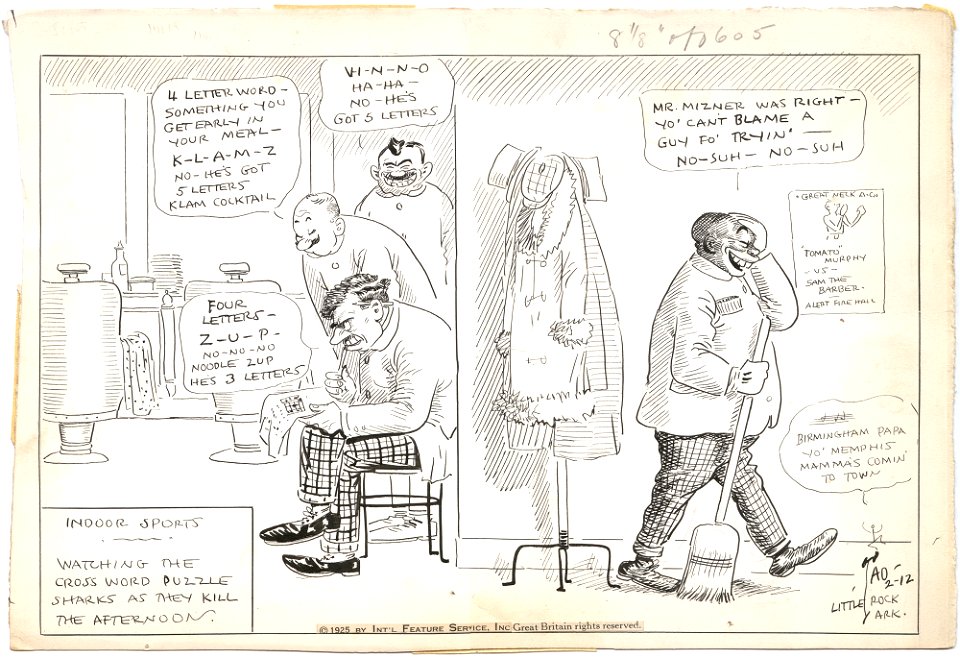 8 1/8"
0605
4 LETTER WORD -
SOMETHING YOU
GET EARLY IN
YOUR MEAL -
K-L-A-M-Z
NO - HE'S GOT
5 LETTERS
KLAM COCKTAIL
VI-N-N-O
HA-HA-
NO-HE'S
GOT 5 LETTERS
FOUR
LETTERS -
Z-U-P-
NO-NO-NO
NOODLE ZUP
HES 3 LETTERS
MR. MIZNER WAS RIGHT -
YO' CAN'T BLAME A
GUY FO' TRYIN' -
NO-SUH - NO-SUH
GREAT NECK A.C.
"TOMATO"
MURPHY
- VS -
SAM THE
BARBER.
ALERT FIRE HALL
BIRMINGHAM PAPA
YO' MEMPHIS
MAMMA'S COMIN'
TO TOWN
INDOOR SPORTS
WATCHING THE
CROSS WORD PUZZLE
SHARKS AS THEY KILL
THE AFTERNOON.
TAD
2-12
LITTLE ROCK
ARK.
© 1925 BY INT'L FEATURE SERVICE, INC. Great Britain rights reserved.